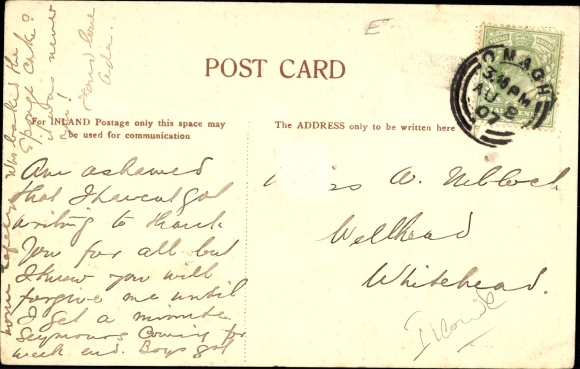 POST CARD
For INLAND Postage only this space may
be used for communication
The ADDRESS only to be written here
OMAGH
3.40 PM
AU 8
07
Am ashamed
that I havent got
writing to thank
you for all but
I know you will
forgive me until
I get a minute
Seymours Coming for
week end. Boys got
home safely. Who boiled the
Sponge cake?
it was never
Fond love
Ada.
Miss W. Niblock
Wellhead
Whitehead.
E